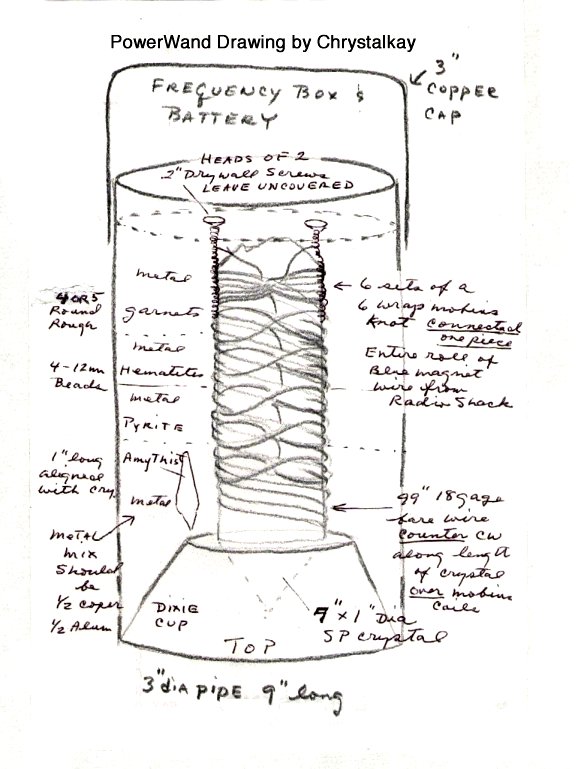 PowerWand Drawing by Chrystalkay
3"
COPPER
CAP
FREQUENCY BOX &
BATTERY
HEADS OF 2
2" Drywall Screws
LEAVE UNCOVERED
metal
4 OR 5
Round
Rough
garnets
metal
4-12mm
Beads
Hematites
metal
PYRITE
1" long
aligned
with cry
AmyThist
metal
METAL
mix
Should
be
1/2 coper
1/2 Alum
6 sets of a
6 wrap mobius
Knot connected
one piece
Entire roll of
Blue magnet
wire from
Radio Shack
99" 18 gage
bare wire
counter CW
along length
of crystal
over mobius
Coils
DIXIE
CUP
" x 1" Dia
SP crystal
TOP
3" dia pipe 9" long